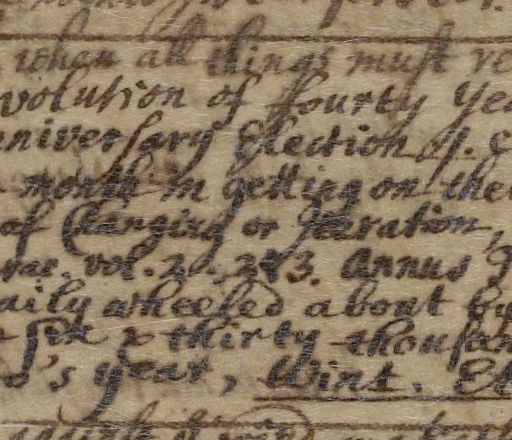 when all things must re
volution of fourty yea
nniversary Election
month in getting on the
of Changing or
rar. vol. 2. 283. Annus
aily wheeled about by
six & thirty thousan
o's year, Wint. El